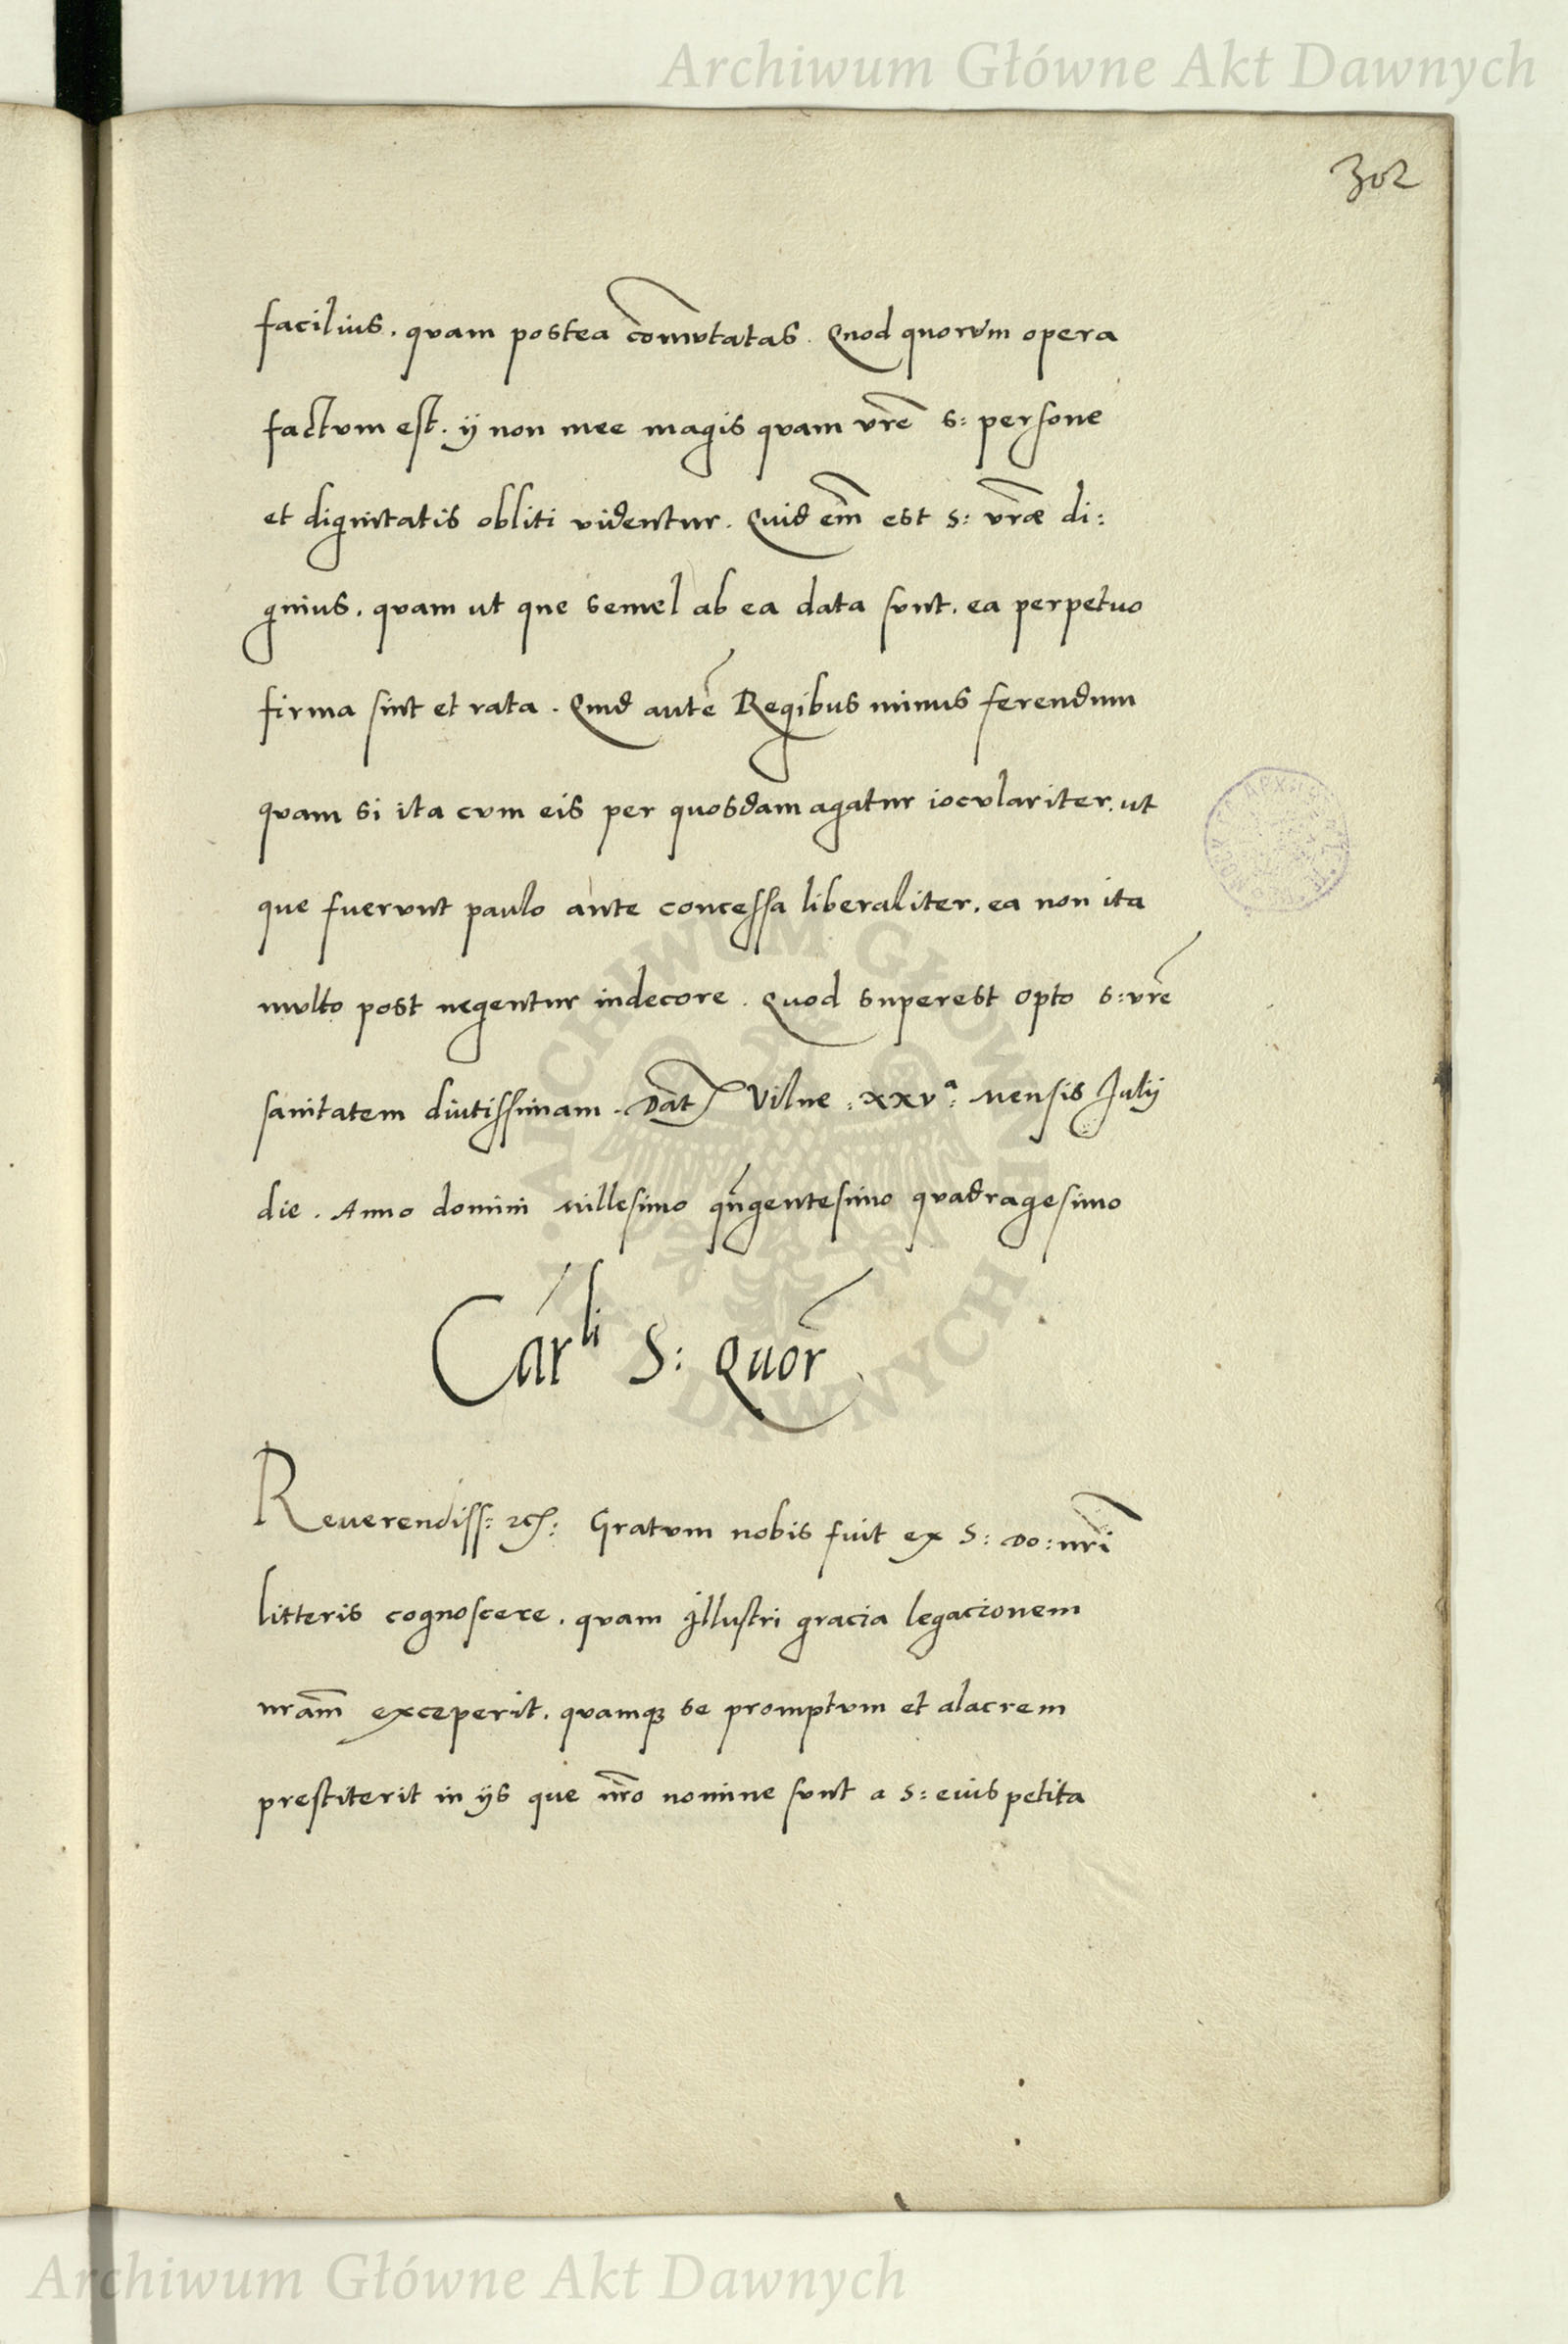 Archiwum Główne Akt Dawnych
302
facilius. quam postea com̄utatas. Quod quorum opera
factum est. ij non mee magis quam vr̄e s: persone
et dignitatis obliti videntur. Quid em̄ est s: vr̄æ di:
gnius. quam ut que semel ab ea data sunt. ea perpetuo
firma sint et rata. Quid autē Regibus minus ferendum
quam si ita cum eis per quosdam agatur iocular iter. ut
que fuerunt paulo ante concessa liberaliter. ea non ita
multo post negentur indecore. Quod superest opto s: vr̄e
sanitatem diutissimam. Dat̄ Vilne : xxvª: mensis Julij
die. Anno domini millesimo qūgentesimo quadragesimo
Carˡⁱ S: Quor̄
Reuerendiss: etc: Gratum nobis fuit ex S: Do: nr̄i
litteris cognoscere. quam illustri gracia legacionem
nr̄am exceperit. quamqꝫ se promptum et alacrem
prestiterit in ijs que nr̄o nomine sunt a s: eius petita
ARCHIWUM GŁÓWNE AKT DAWNYCH
Archiwum Główne Akt Dawnych